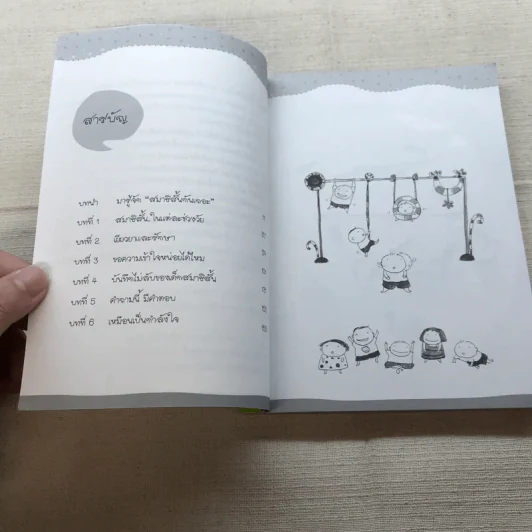 สารบัญ
บทนำ มารู้จัก "สมาธิสั้นกันเถอะ"
บทที่ 1 สมาธิสั้นในแต่ละช่วงวัย
บทที่ 2 เยียวยาและรักษา
บทที่ 3 ขอความเข้าใจหน่อยได้ไหม
บทที่ 4 บันทึกไม่ลับของเด็กสมาธิสั้น
บทที่ 5 คำถามนี้ มีคำตอบ
บทที่ 6 เหมือนเป็นกำลังใจ